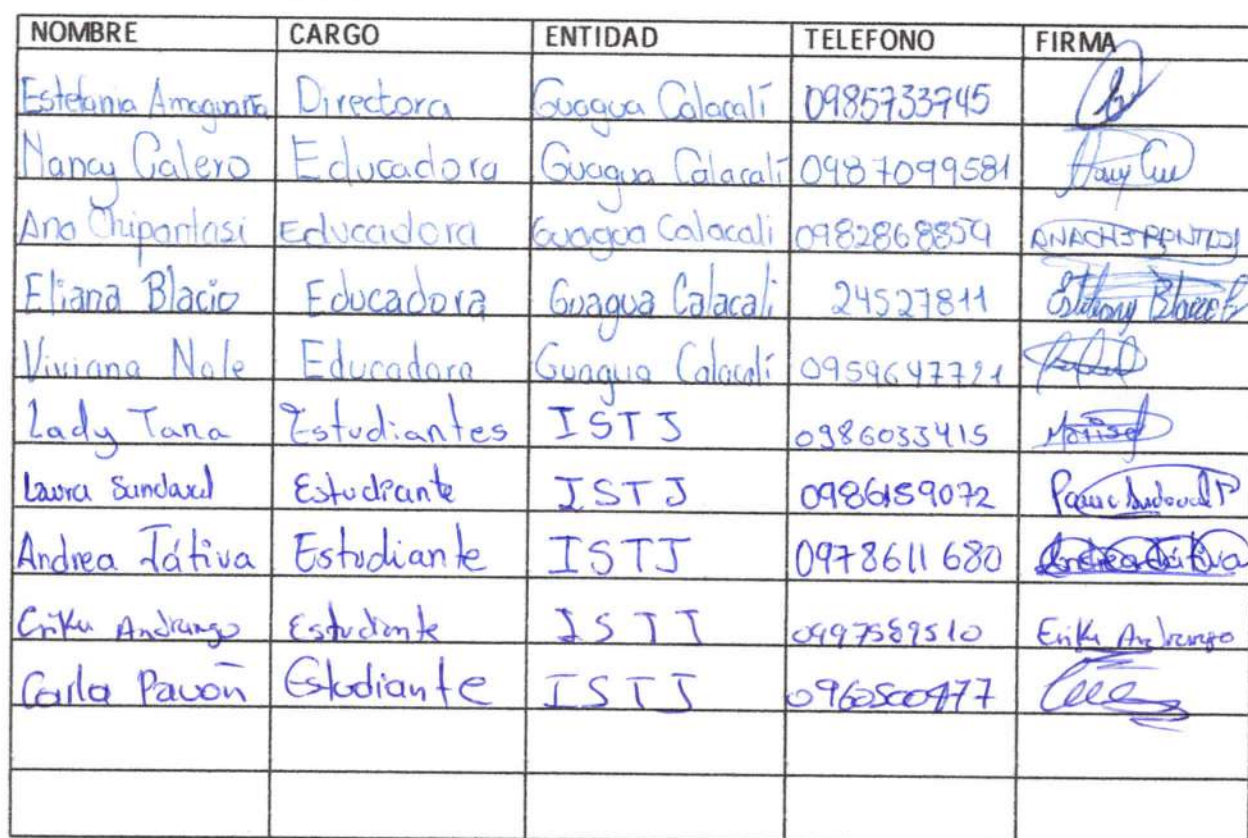 NOMBRE CARGO ENTIDAD TELEFONO FIRMA
Estefania Amaguaña Directora Guagua Calacalí 0985733745
Nancy Calero Educadora Guagua Calacalí 0987099581
Ana Chipantasi Educadora Guagua Calacali 0982868859 ANA CHIPANTASI
Eliana Blacio Educadora Guagua Calacali 24527811
Viviana Nole Educadora Guagua Calacalí 0959647721
Lady Tana Estudiantes ISTJ 0986033415
Laura Sandoval Estudiante ISTJ 0986159072
Andrea Játiva Estudiante ISTJ 0978611680 Andrea Játiva
Erika Andrango Estudiante ISTJ 0997589510 Erika Andrango
Carla Pavón Estudiante ISTJ